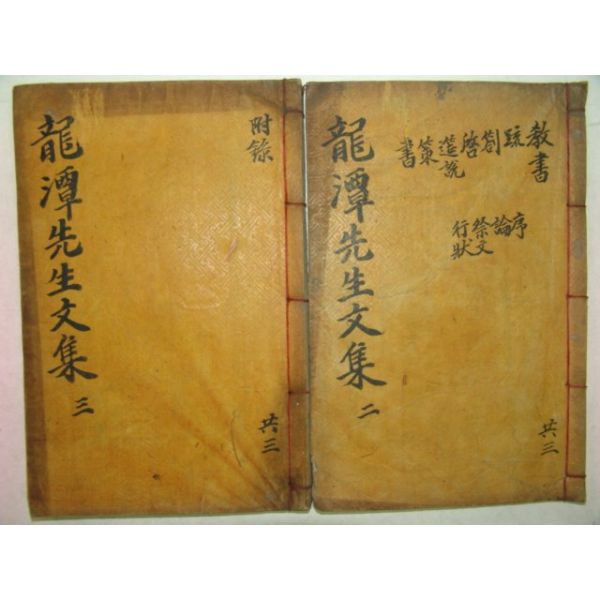 教書
疏
劄
啓
筵說
策
書
序
論
祭文
行狀
共三
龍潭先生文集 二
附錄
共三
龍潭先生文集 三